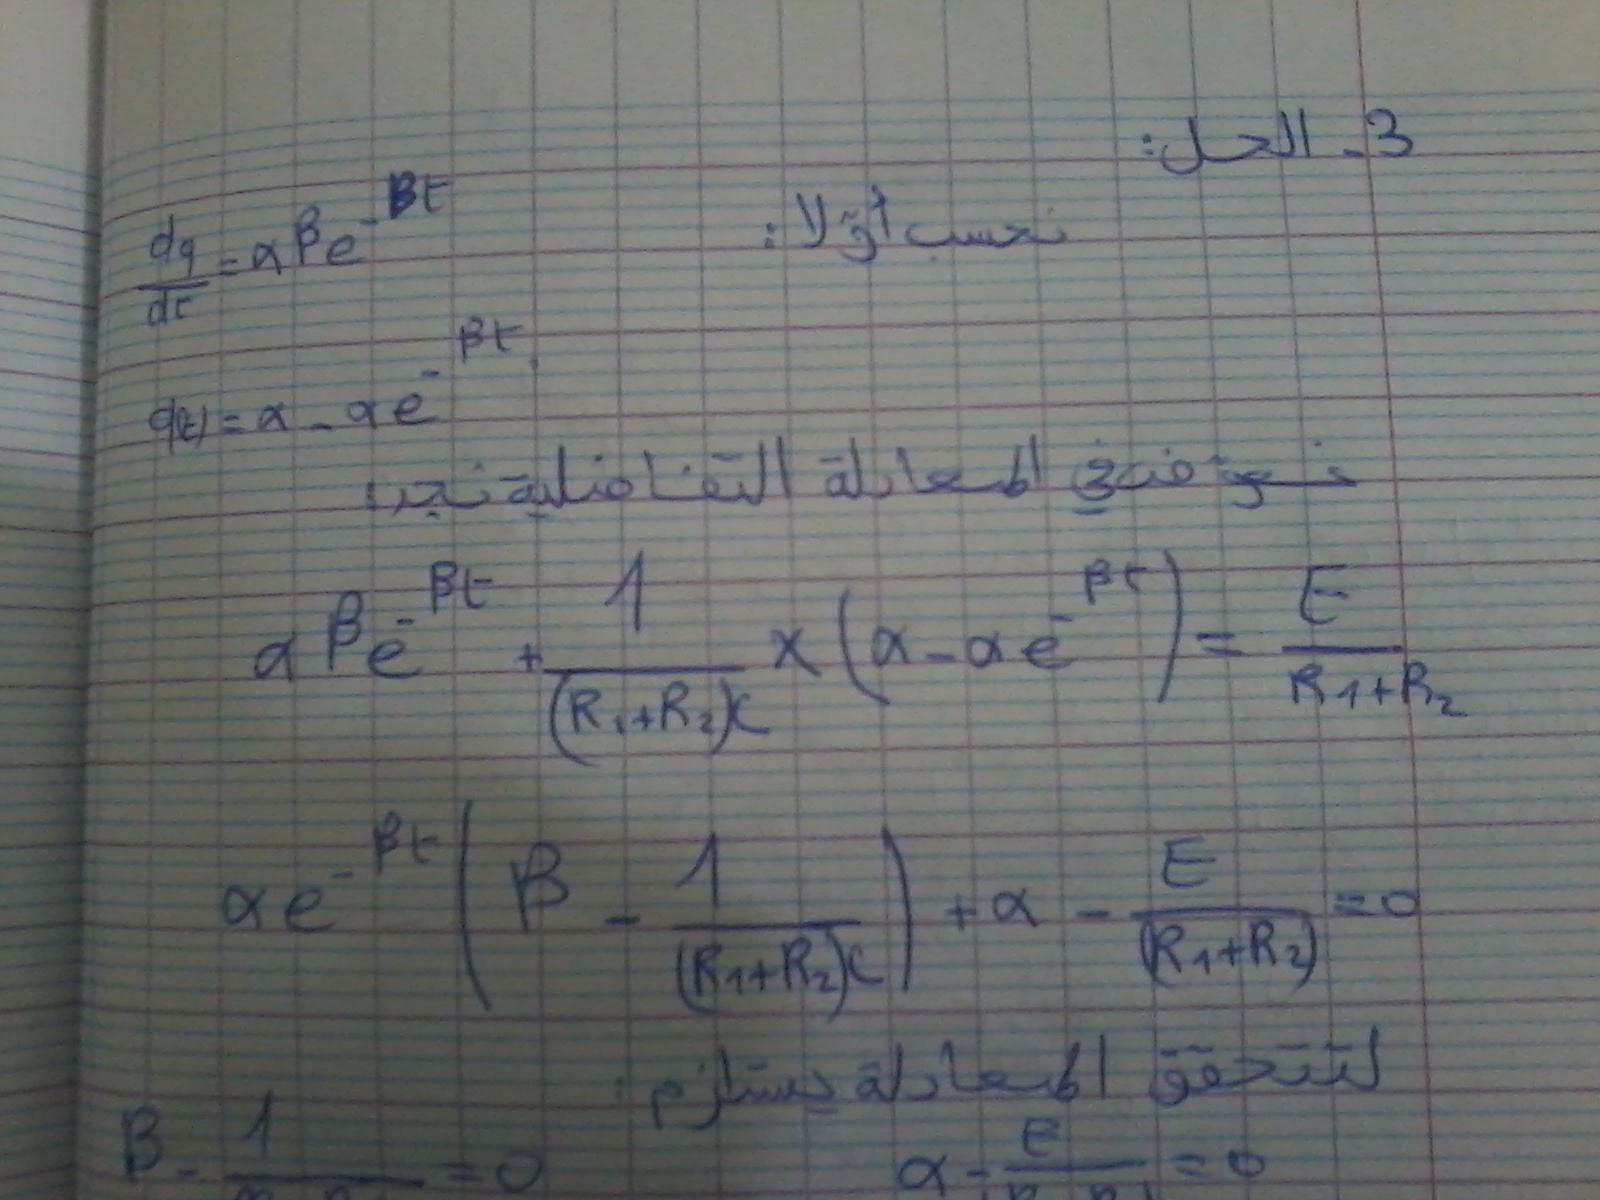 3 - الحل:
نحسب أولا:
dq/dt = αβe^-βt
q(t) = α - αe^-βt
نعوض في المعادلة التفاضلية نجد:
αβe^-βt + 1/(R₁+R₂)C × (α - αe^-βt) = E/R₁+R₂
αe^-βt (β - 1/(R₁+R₂)C) + α - E/(R₁+R₂) = 0
لتتحقق المعادلة يستلزم:
β - 1/ = 0 α - E/ = 0